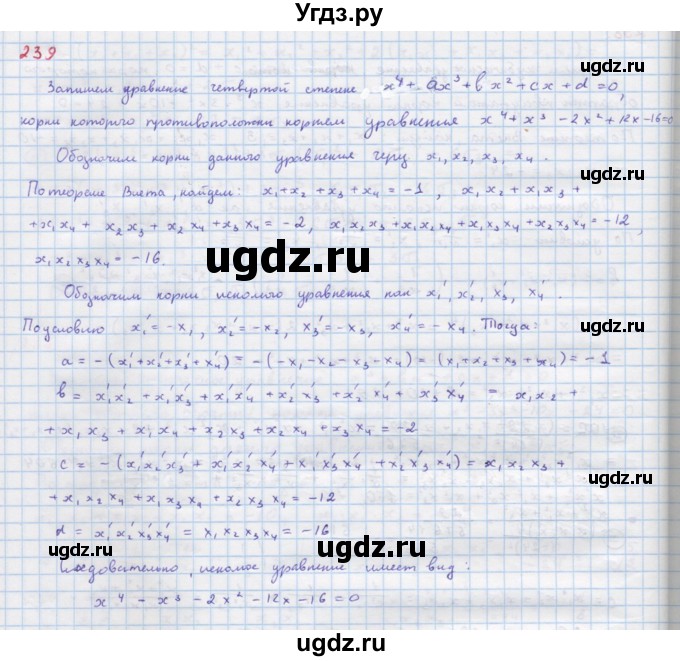 Угдз.ру
239
Запишем уравнение четвертой степене x⁴ + ax³ + bx² + cx + d = 0,
корни которого противоположни корнем уравнения x⁴ + x³ - 2x² + 12x - 16 = 0
Обозначим корни данного уравнения через x₁, x₂, x₃, x₄.
По теореме Виета, найдем: x₁ + x₂ + x₃ + x₄ = -1, x₁x₂ + x₁x₃ +
+ x₁x₄ + x₂x₃ + x₂x₄ + x₃x₄ = -2, x₁x₂x₃ + x₁x₂x₄ + x₁x₃x₄ + x₂x₃x₄ = -12,
x₁x₂x₃x₄ = -16.
Обозначим корни искомого уравнения как x₁′, x₂′, x₃′, x₄′.
По условию x₁′ = -x₁, x₂′ = -x₂, x₃′ = -x₃, x₄′ = -x₄. Тогда:
a = -(x₁′ + x₂′ + x₃′ + x₄′) = -(-x₁ - x₂ - x₃ - x₄) = (x₁ + x₂ + x₃ + x₄) = -1
b = x₁′x₂′ + x₁′x₃′ + x₁′x₄′ + x₂′x₃′ + x₂′x₄′ + x₃′x₄′ = x₁x₂ +
+ x₁x₃ + x₁x₄ + x₂x₃ + x₂x₄ + x₃x₄ = -2
c = -(x₁′x₂′x₃′ + x₁′x₂′x₄′ + x₁′x₃′x₄′ + x₂′x₃′x₄′) = x₁x₂x₃ +
+ x₁x₂x₄ + x₁x₃x₄ + x₂x₃x₄ = -12
d = x₁′x₂′x₃′x₄′ = x₁x₂x₃x₄ = -16
Следовательно, искомое уравнение имеет вид:
x⁴ - x³ - 2x² - 12x - 16 = 0
uгdz.ru
uгdz.ru
uгdz.ru
uгdz.ru
uгdz.ru
uгdz.ru
uгdz.ru
uгdz.ru